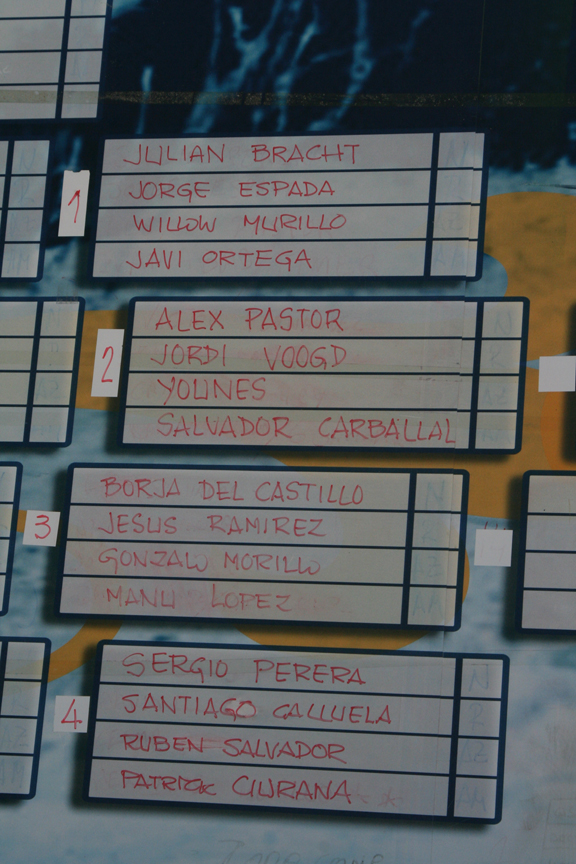 1
JULIAN BRACHT
JORGE ESPADA
WILLOW MURILLO
JAVI ORTEGA
2
ALEX PASTOR N
JORDI VOOGD R
YOUNES AZ
SALVADOR CARBALLAL
3
BORJA DEL CASTILLO N
JESUS RAMIREZ R
GONZALO MORILLO AZ
MANU LOPEZ AM
4
SERGIO PERERA N
SANTIAGO CALLUELA R
RUBEN SALVADOR AZ
PATRICK CIURANA AM